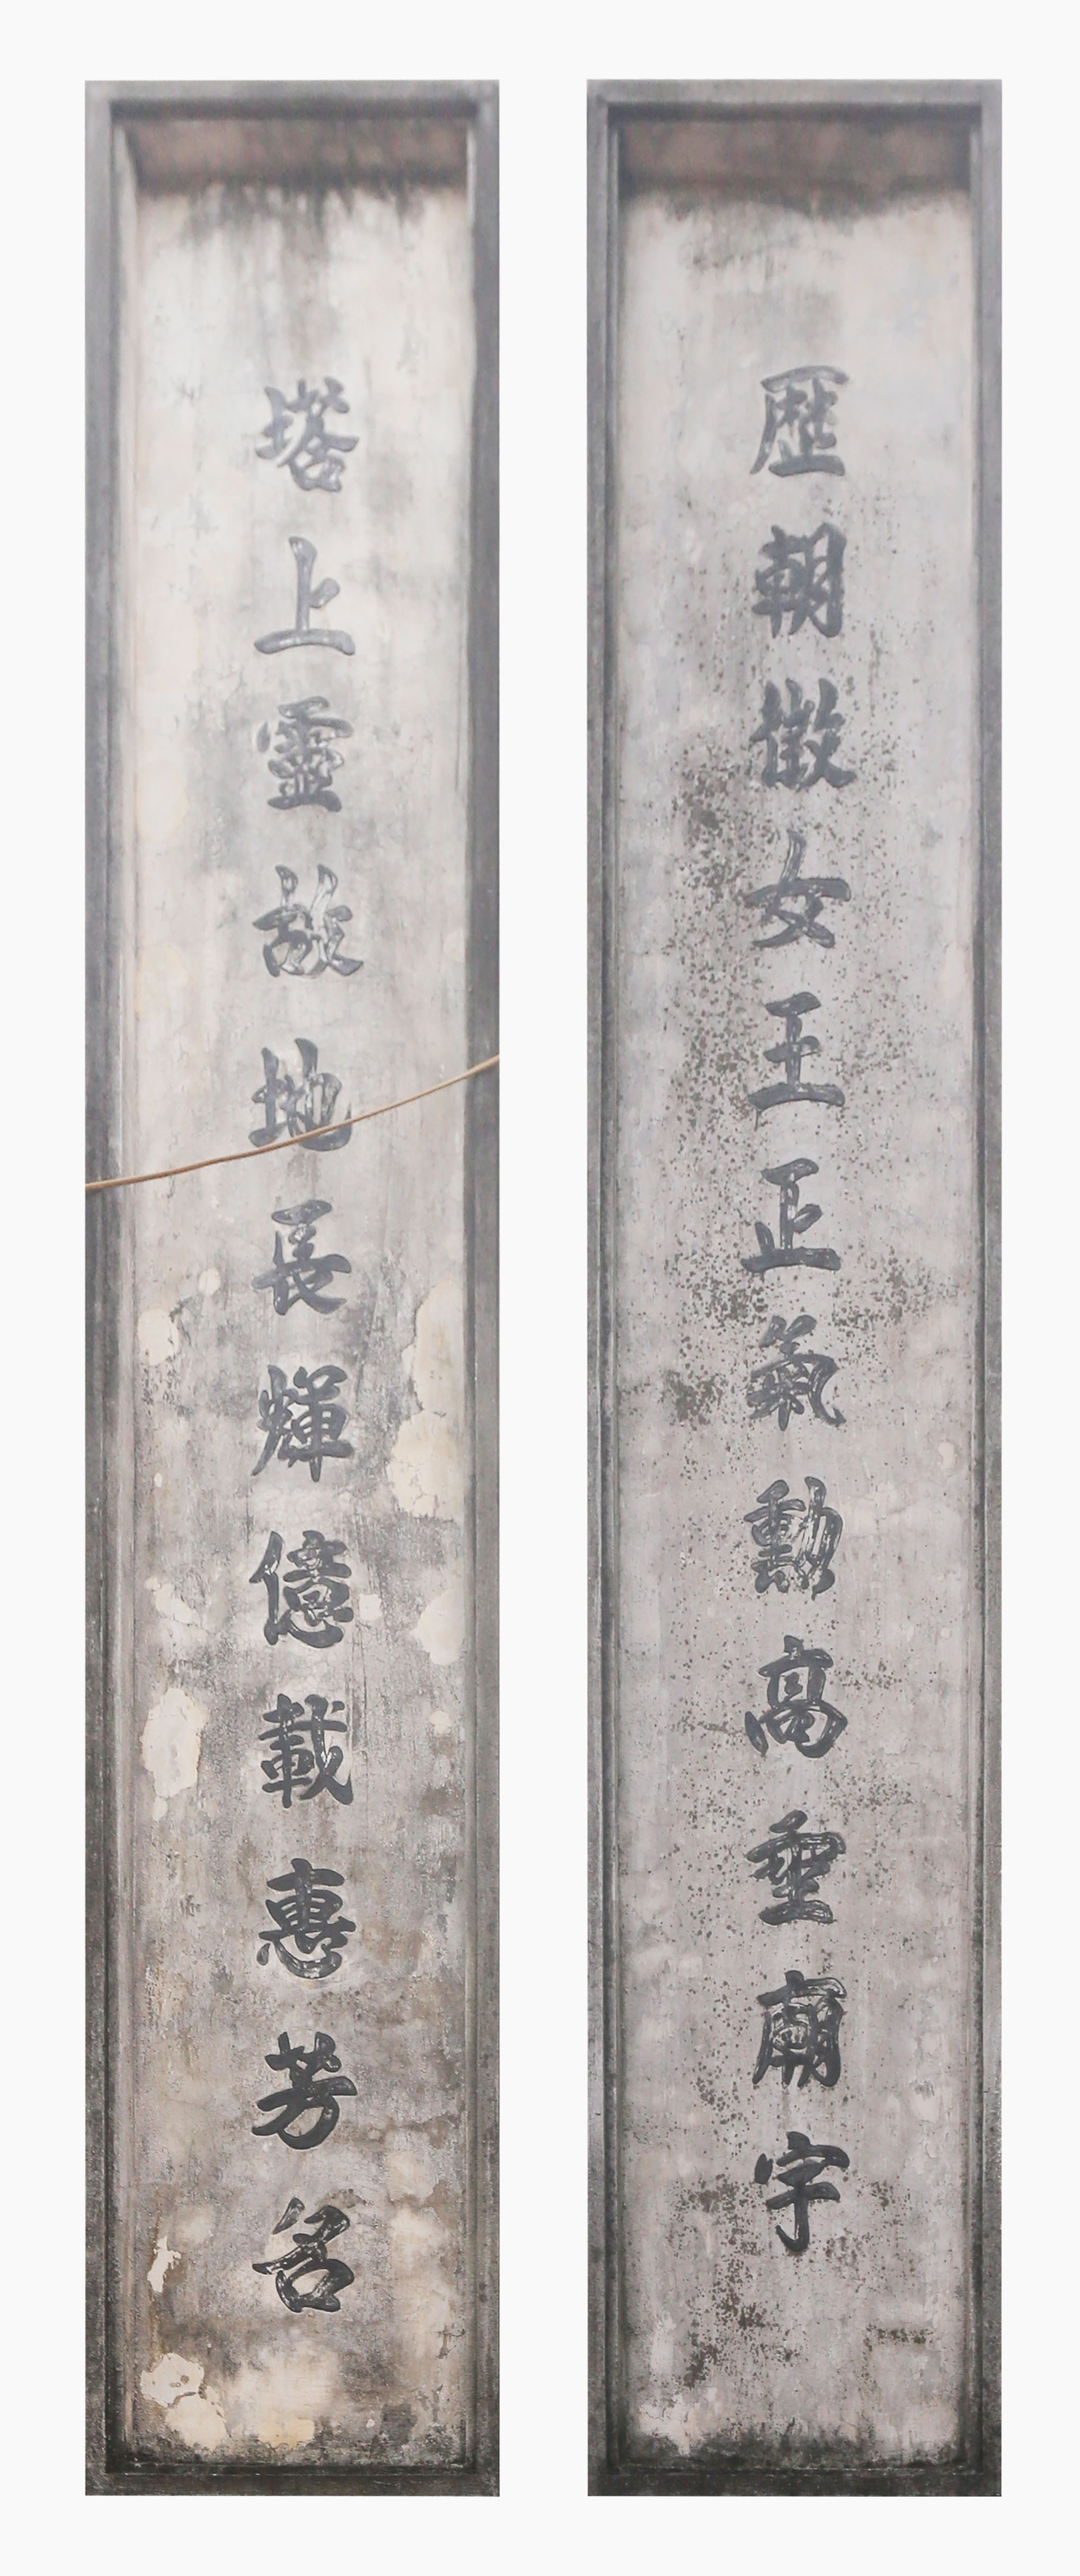 歷朝徵女王正氣勳高垂廟宇
塔上靈故地長輝億載惠芳名